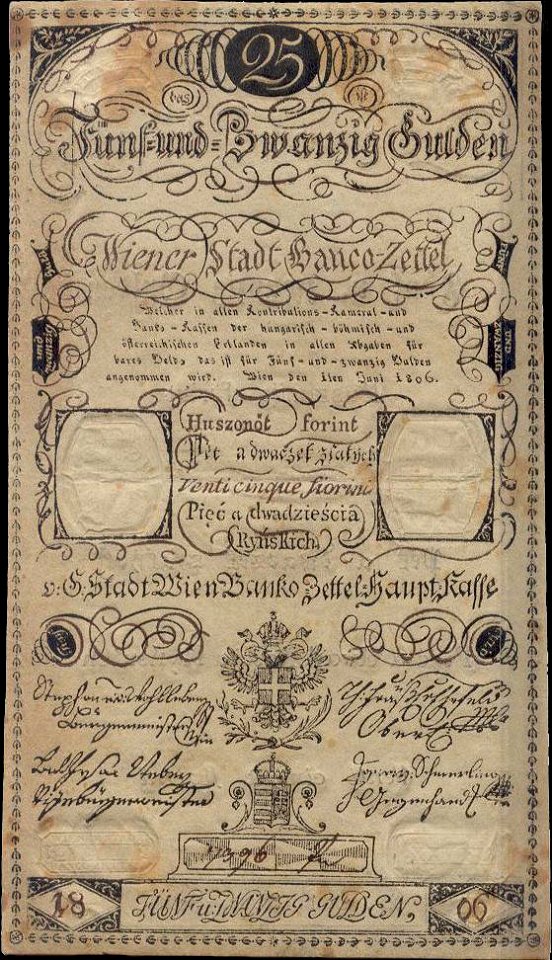 25
Fünf=und=Zwanzig Gulden
Wiener Stadt Banco=Zettel
FÜNF
Welcher in allen Kontributions-Kameral-und
Banko-Kassen der hungarisch-böhmisch-und
österreichischen Erblanden in allen Abgaben für
bares Geld, das ist für Fünf-und-zwanzig Gulden
UND
ZWANZIG
angenommen wird. Wien den 1ten Juni 1806.
Huszonöt forint
Pět a dwaczet zlatych
Venti cinque fiorini
Pięć a dwadzieścia
Ryńskich
v: G. Stadt Wien Banko Zettel Haupt Kasse
Bürgermeister
Vizebürgermeister
18
FÜNFuZWANZIG GULDEN,
06